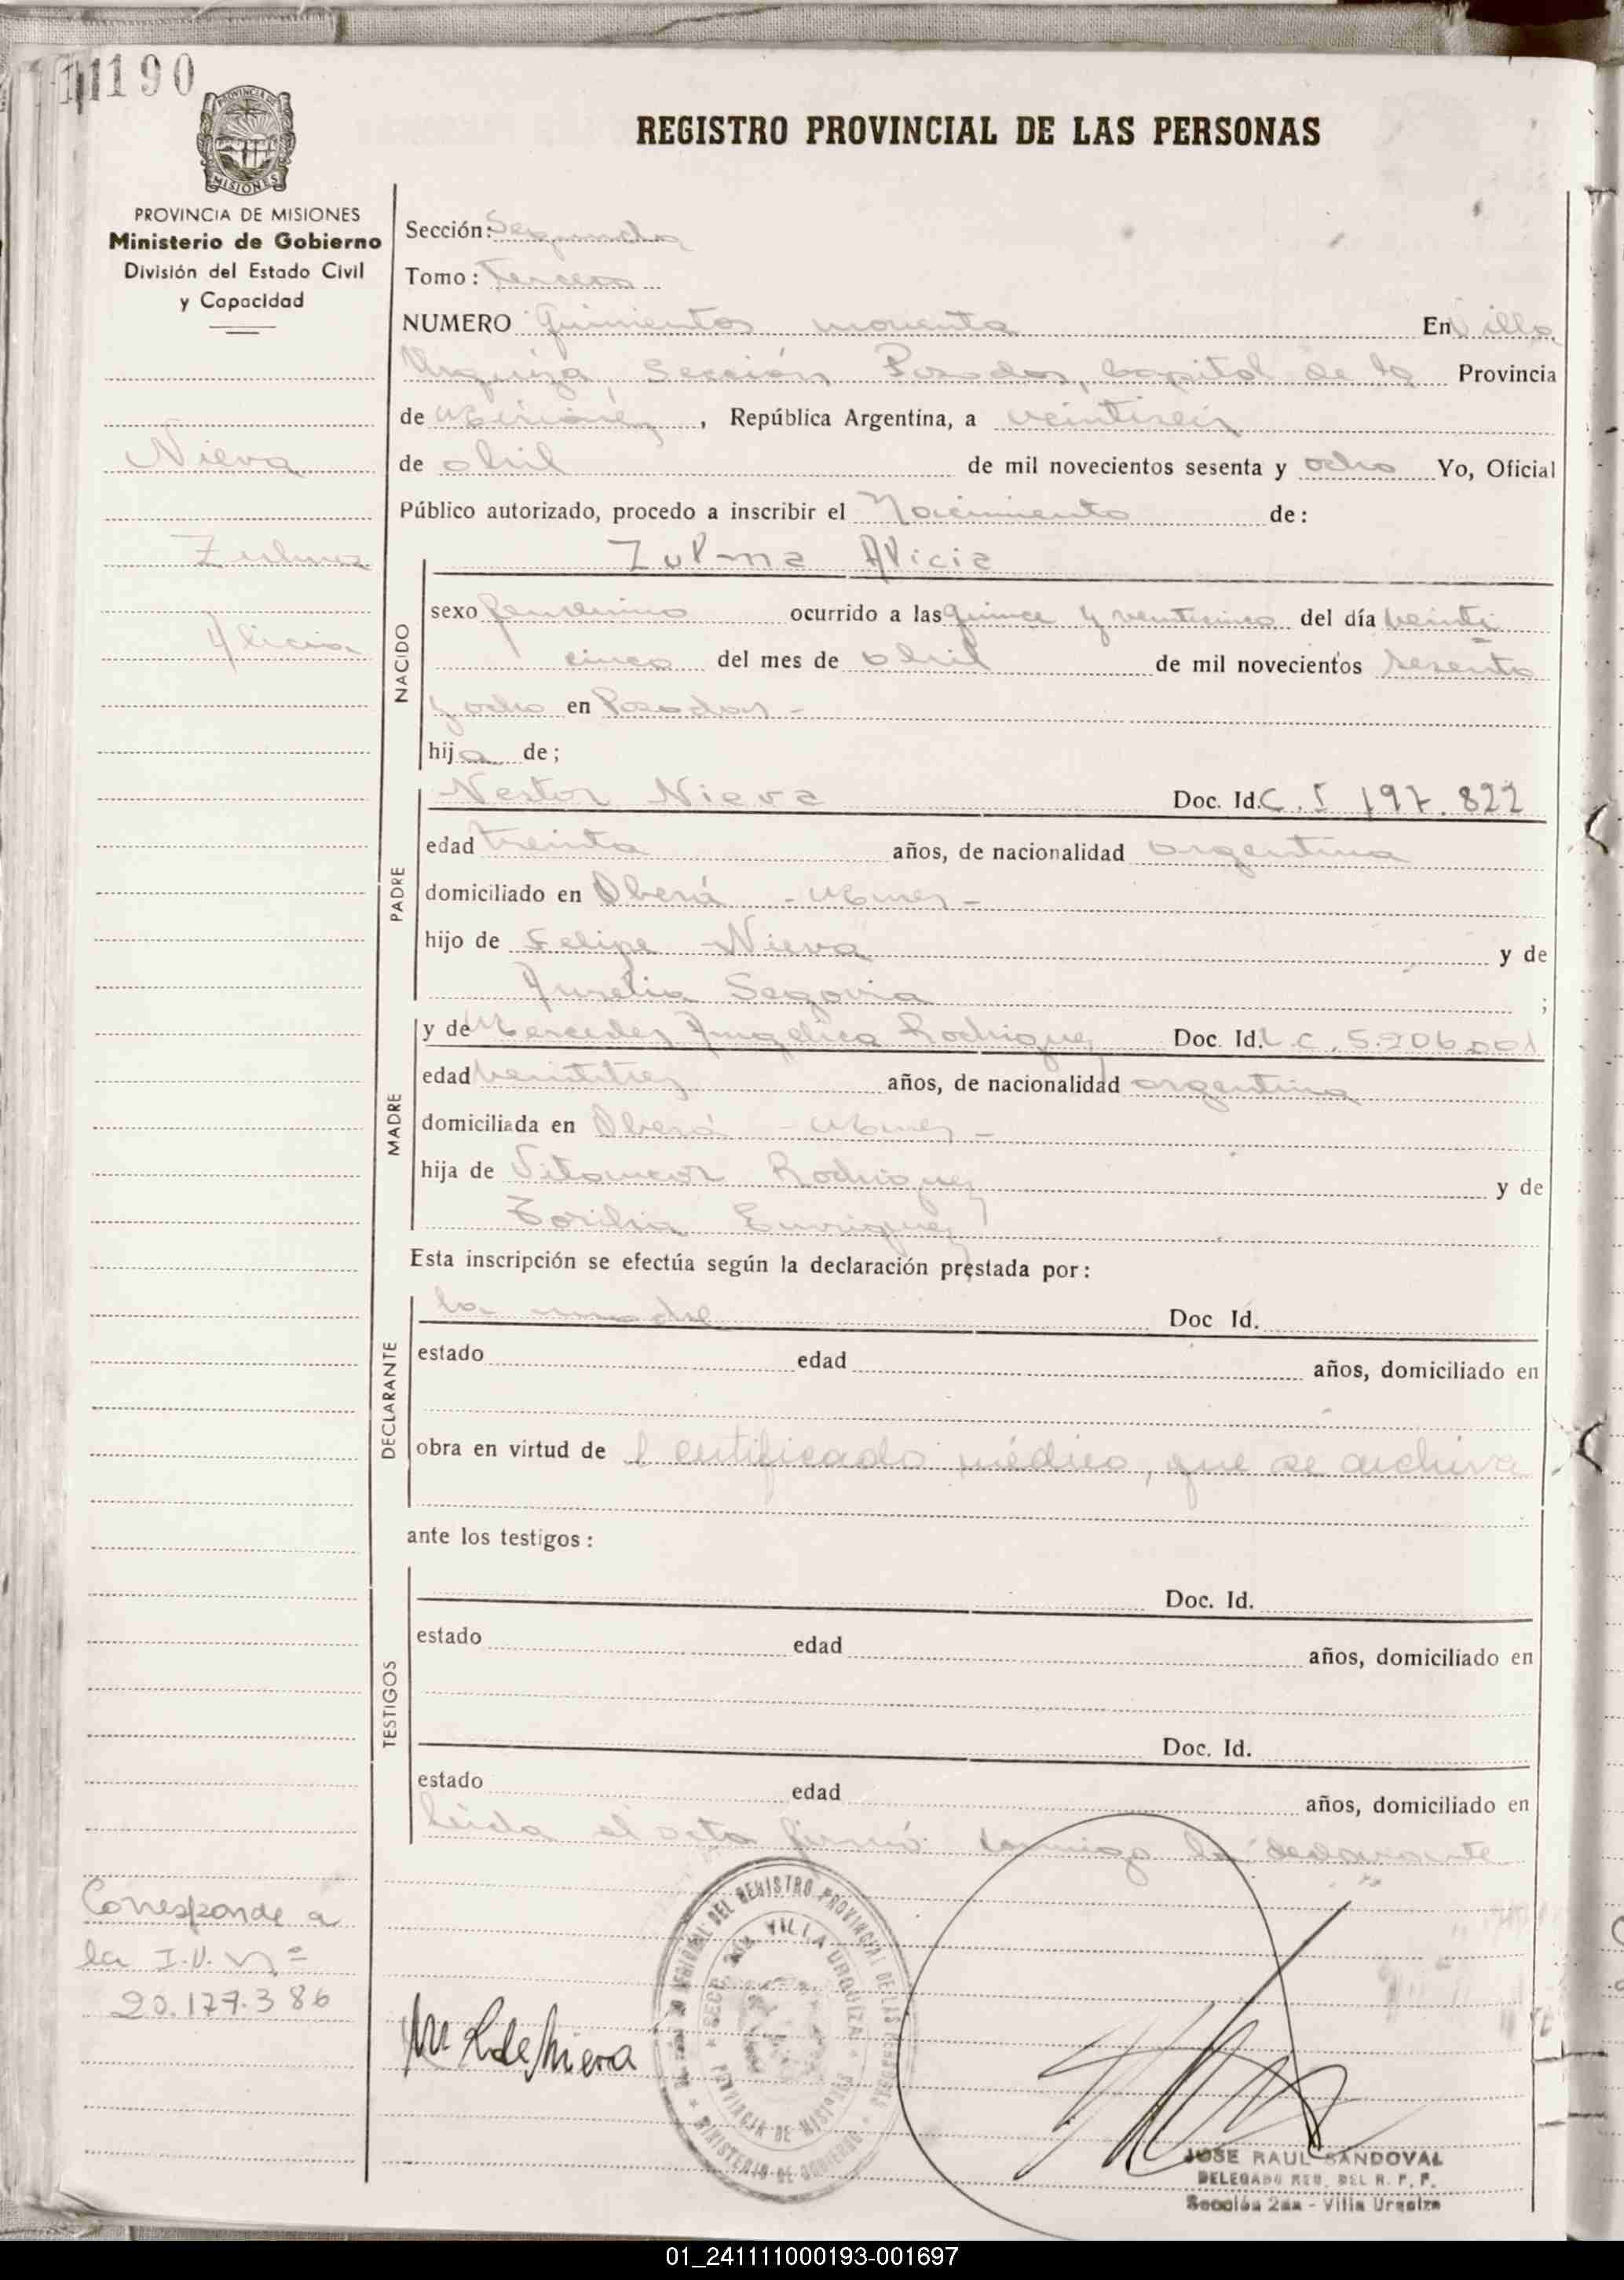 190
REGISTRO PROVINCIAL DE LAS PERSONAS
PROVINCIA DE MISIONES
Ministerio de Gobierno
División del Estado Civil
y Capacidad
Sección: Segunda
Tomo: Tercero
NUMERO Quinientos noventa En Villa
Urquiza, Sección Posadas, Capital de la Provincia
de Misiones, República Argentina, a veintiseis
de abril de mil novecientos sesenta y ocho Yo, Oficial
Público autorizado, procedo a inscribir el Nacimiento de:
Nieva
Zulma
Alicia
Zulma Alicia
NACIDO
sexo femenino ocurrido a las quince y venticinco del día veinti
cinco del mes de abril de mil novecientos sesenta
y ocho en Posadas -
hija de;
PADRE
Nestor Nieva Doc. Id. C. I 197.822
edad treinta años, de nacionalidad argentina
domiciliado en Oberá - Mnes -
hijo de Felipe Nieva y de
Aurelia Segovia ;
MADRE
y de Mercedes Angelica Rodriguez Doc. Id. L.C. 5.206.001
edad veintitres años, de nacionalidad argentina
domiciliada en Oberá - Mnes -
hija de Rodriguez y de
Enriquez
Esta inscripción se efectúa según la declaración prestada por:
DECLARANTE
la madre Doc Id.
estado edad años, domiciliado en
obra en virtud de l certificado médico, que se archiva
ante los testigos:
TESTIGOS
Doc. Id.
estado edad años, domiciliado en
Doc. Id.
estado edad años, domiciliado en
Leida el acta firmó conmigo la declarante
Corresponde a
la I.N. Nº
20.177.386
M R de Nieva
REGISTRO PROVINCIAL DE LAS PERSONAS
SECC. 2da VILLA URQUIZA
PROVINCIA DE MISIONES
MINISTERIO DE GOBIERNO
JOSE RAUL SANDOVAL
DELEGADO REG. DEL R. P. P.
Sección 2da - Villa Urquiza
01_241111000193-001697